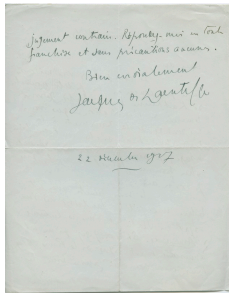 jugement contraire. Répondez-moi en toute
franchise et sans précautions aucunes.
Bien cordialement
Jacques de Lacretelle
22 novembre 1927